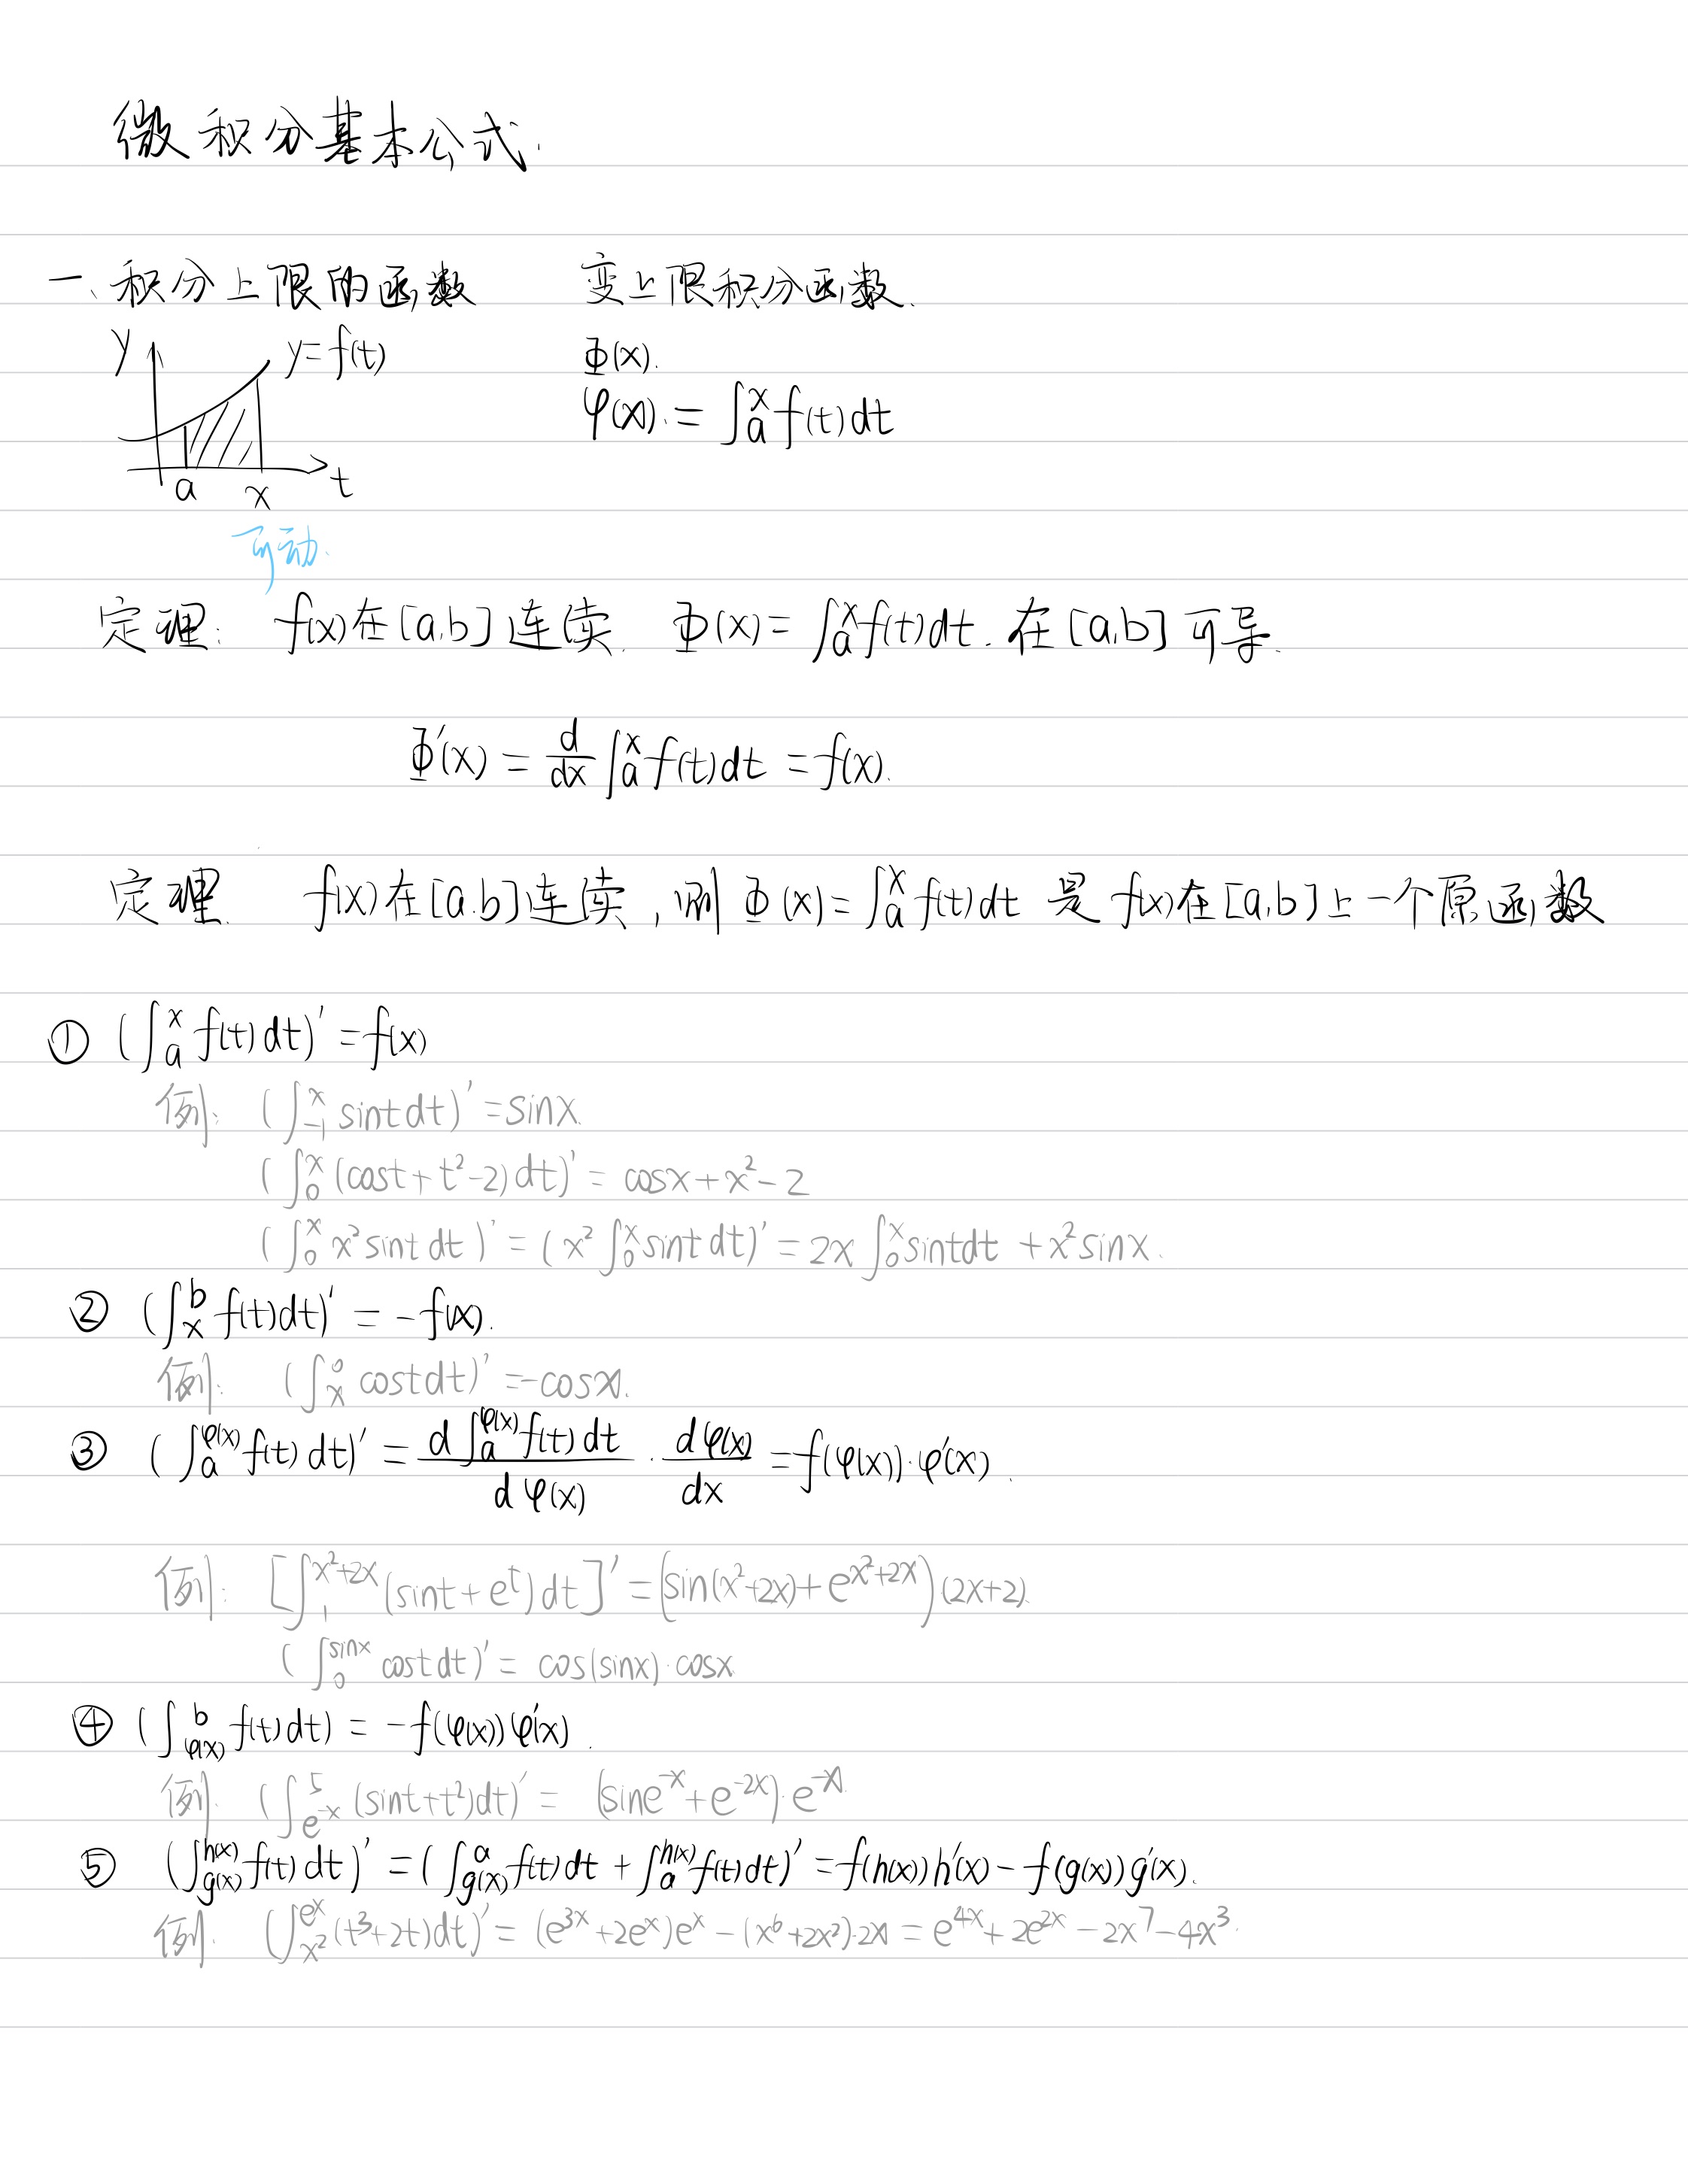 微积分基本公式.
一、积分上限的函数 变上限积分函数.
y y=f(t) Φ(x).
φ(x).=∫ₐˣf(t)dt
a x t
可动.
定理: f(x)在[a,b]连续. Φ(x)=∫ₐˣf(t)dt.在[a,b]可导.
Φ'(x)=d/dx ∫ₐˣf(t)dt=f(x).
定理. f(x)在[a.b]连续,则Φ(x)=∫ₐˣf(t)dt 是f(x)在[a,b]上一个原函数
① (∫ₐˣf(t)dt)'=f(x)
例: (∫₋₁ˣ sint dt)'=sinx.
(∫₀ˣ(cost+t²-2)dt)'=cosx+x²-2
(∫₀ˣ x²sint dt)'=(x²∫₀ˣsint dt)'=2x∫₀ˣsintdt+x²sinx.
② (∫ₓᵇf(t)dt)'=-f(x).
例: (∫ₓ⁰ costdt)'=-cosx.
③ (∫ₐ^φ(x) f(t)dt)'=d∫ₐ^φ(x) f(t)dt/dφ(x) · dφ(x)/dx=f(φ(x))·φ'(x).
例: [∫₁^(x²+2x) (sint+eᵗ)dt]'=(sin(x²+2x)+e^(x²+2x))(2x+2).
(∫₀^sinx costdt)'=cos(sinx)·cosx
④ (∫_φ(x)^b f(t)dt)=-f(φ(x))φ'(x).
例. (∫_e^-x^5 (sint+t²)dt)'=(sine^-x+e^-2x)·e^-x.
⑤ (∫_g(x)^h(x) f(t)dt)'=(∫_g(x)^a f(t)dt+∫ₐ^h(x) f(t)dt)'=f(h(x))h'(x)-f(g(x))g'(x).
例. (∫_x²^eˣ (t³+2t)dt)'=(e^3x+2eˣ)eˣ-(x⁶+2x²)·2x=e^4x+2e^2x-2x⁷-4x³.